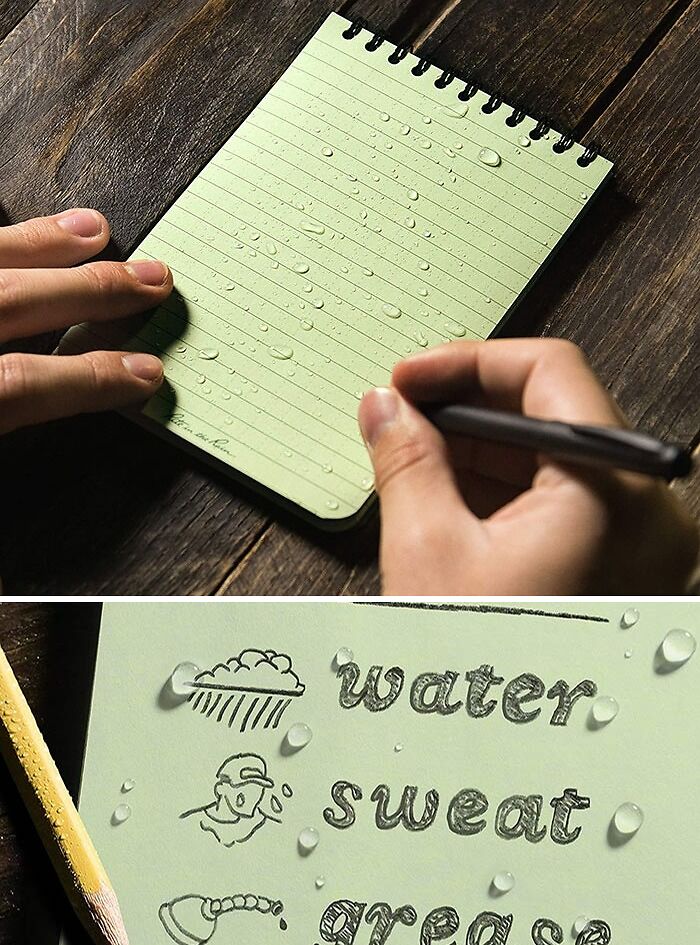 Rite in the Rain
water
sweat
grease